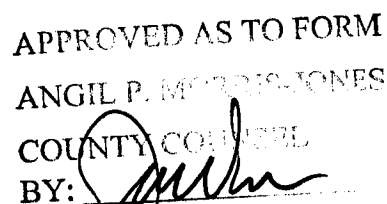 APPROVED AS TO FORM
ANGIL P. MORRIS-JONES
COUNTY COUNSEL
BY: